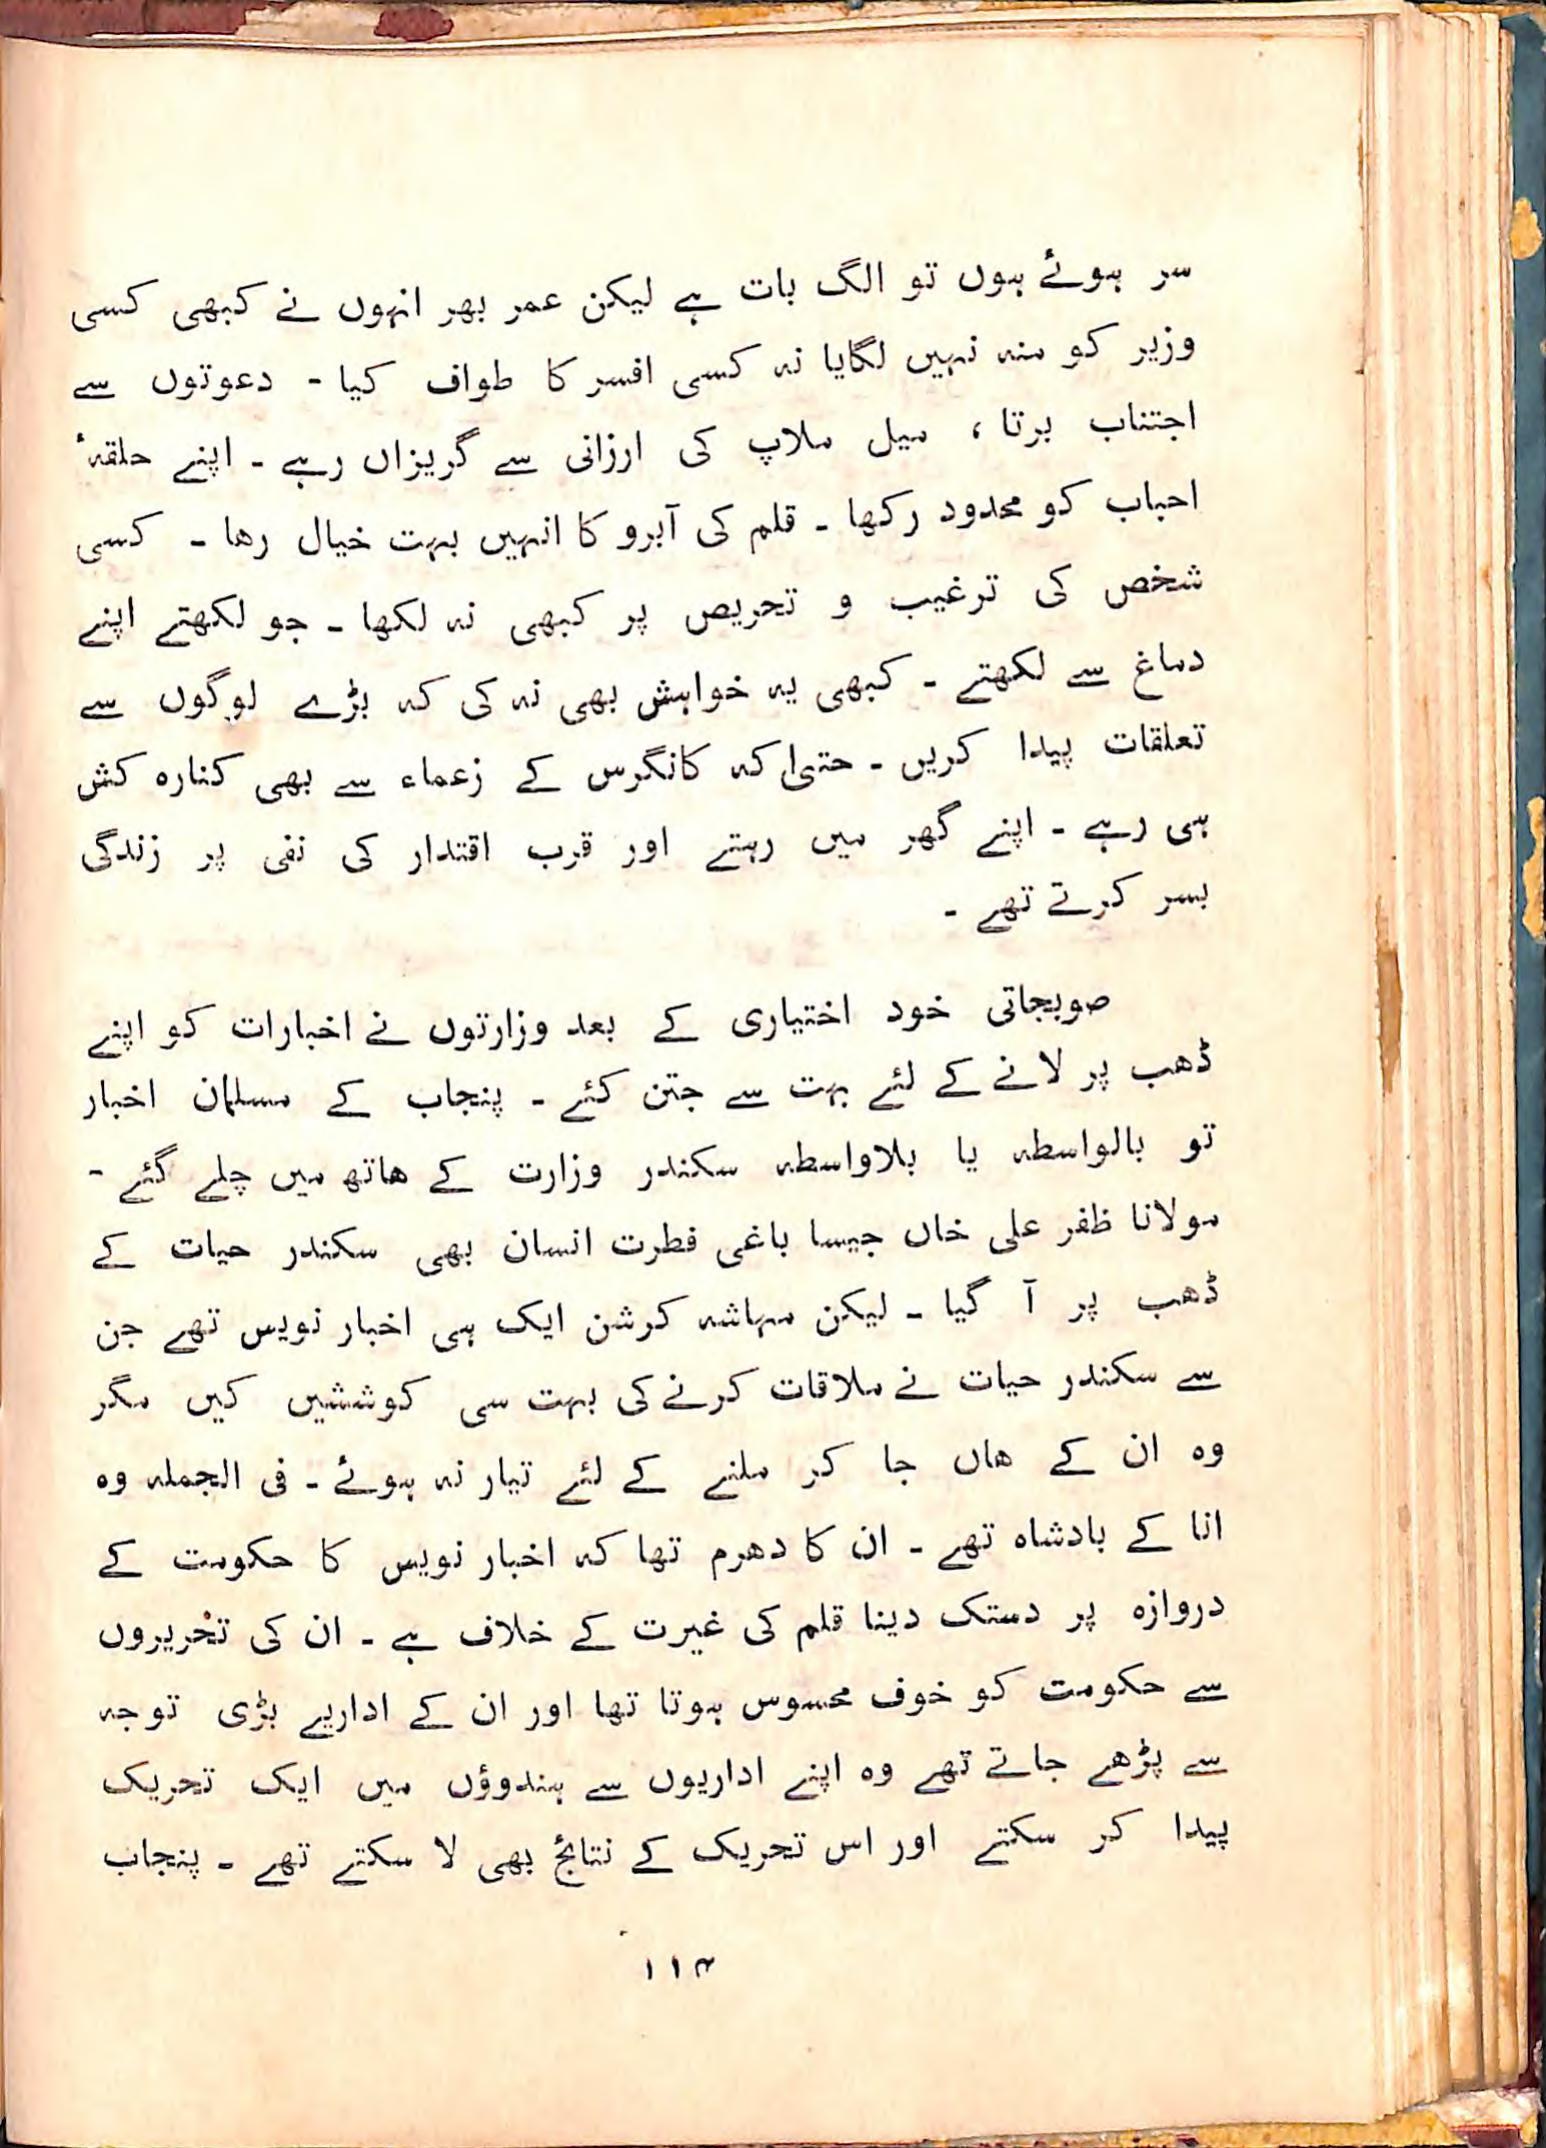 سر ہوئے ہوں تو الگ بات ہے لیکن عمر بھر انہوں نے کبھی کسی
وزیر کو منہ نہیں لگایا نہ کسی افسر کا طواف کیا - دعوتوں سے
اجتناب برتا ، میل ملاپ کی ارزانی سے گریزاں رہے - اپنے حلقۂ
احباب کو محدود رکھا - قلم کی آبرو کا انہیں بہت خیال رھا - کسی
شخص کی ترغیب و تحریص پر کبھی نہ لکھا - جو لکھتے اپنے
دماغ سے لکھتے - کبھی یہ خواہش بھی نہ کی کہ بڑے لوگوں سے
تعلقات پیدا کریں - حتیٰ کہ کانگرس کے زعماء سے بھی کنارہ کش
ہی رہے - اپنے گھر میں رہتے اور قرب اقتدار کی نفی پر زندگی
بسر کرتے تھے -
صوبجاتی خود اختیاری کے بعد وزارتوں نے اخبارات کو اپنے
ڈھب پر لانے کے لئے بہت سے جتن کئے - پنجاب کے مسلمان اخبار
تو بالواسطہ یا بلاواسطہ سکندر وزارت کے ھاتھ میں چلے گئے -
مولانا ظفر علی خاں جیسا باغی فطرت انسان بھی سکندر حیات کے
ڈھب پر آ گیا - لیکن مہاشہ کرشن ایک ہی اخبار نویس تھے جن
سے سکندر حیات نے ملاقات کرنے کی بہت سی کوششیں کیں مگر
وہ ان کے ھاں جا کر ملنے کے لئے تیار نہ ہوئے - فی الجملہ وہ
انا کے بادشاہ تھے - ان کا دھرم تھا کہ اخبار نویس کا حکومت کے
دروازہ پر دستک دینا قلم کی غیرت کے خلاف ہے - ان کی تحریروں
سے حکومت کو خوف محسوس ہوتا تھا اور ان کے اداریے بڑی توجہ
سے پڑھے جاتے تھے وہ اپنے اداریوں سے ہندوؤں میں ایک تحریک
پیدا کر سکتے اور اس تحریک کے نتائج بھی لا سکتے تھے - پنجاب
۱۱۴